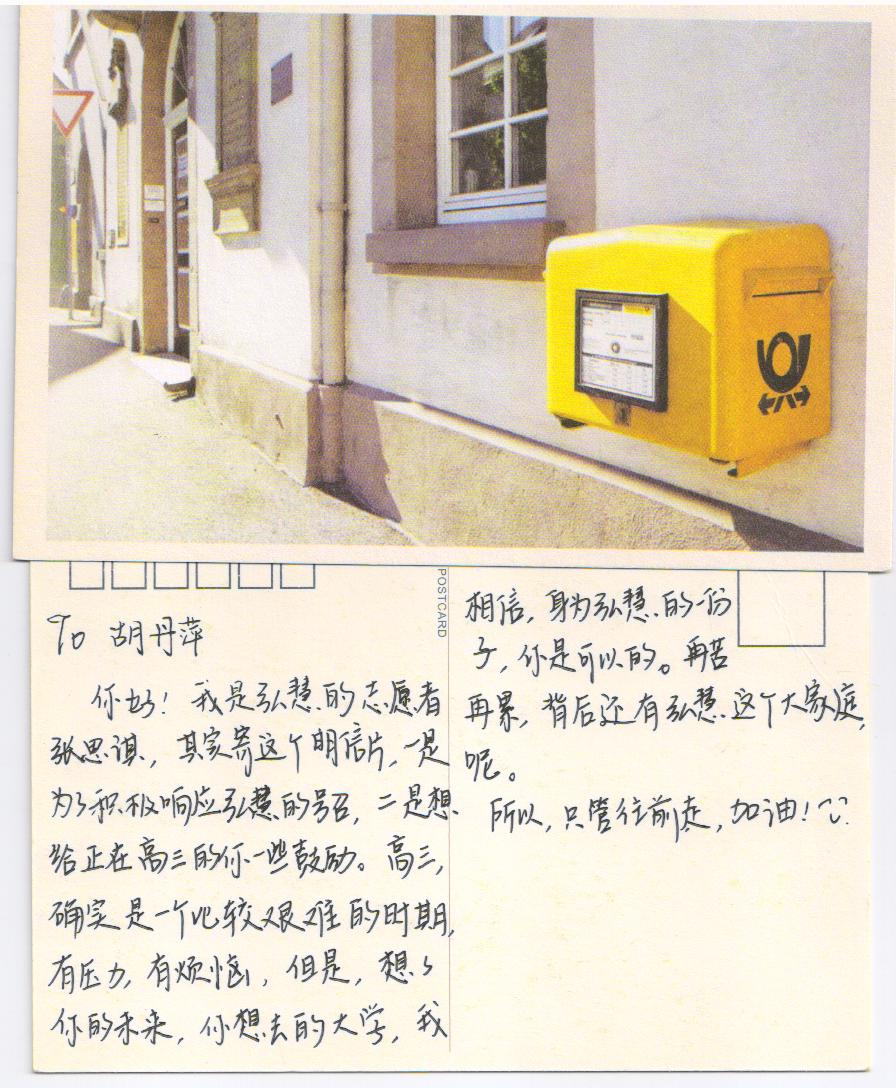 POSTCARD
To 胡丹萍
你好！我是弘慧的志愿者
张思谋，其实寄这个明信片，一是
为了积极响应弘慧的号召，二是想
给正在高三的你一些鼓励。高三，
确实是一个比较艰难的时期，
有压力，有烦恼，但是，想了
你的未来，你想去的大学，我
相信，身为弘慧的一份
子，你是可以的。再苦
再累，背后还有弘慧这个大家庭
呢。
所以，只管往前走，加油！